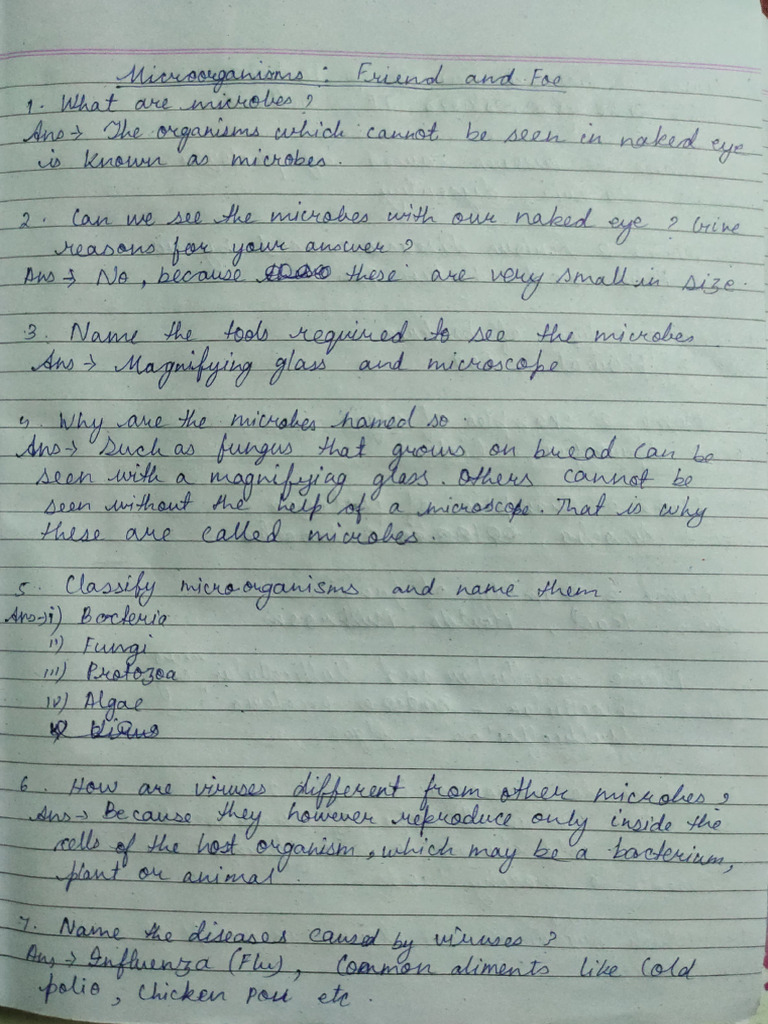 Microorganisms : Friend and Foe
1. What are microbes ?
Ans → The organisms which cannot be seen in naked eye
is known as microbes.
2. Can we see the microbes with our naked eye ? Give
reasons for your answer ?
Ans → No, because these are very small in size.
3. Name the tools required to see the microbes
Ans → Magnifying glass and microscope
4. Why are the microbes named so.
Ans → Such as fungus that grows on bread can be
seen with a magnifying glass. Others cannot be
seen without the help of a microscope. That is why
these are called microbes.
5. Classify microorganisms and name them
Ans → i) Bacteria
ii) Fungi
iii) Protozoa
iv) Algae
6. How are viruses different from other microbes ?
Ans → Because they however reproduce only inside the
cells of the host organism, which may be a bacterium,
plant or animal.
7. Name the diseases caused by viruses ?
Ans → Influenza (Flu), Common aliments like Cold
polio, Chicken Pox etc.